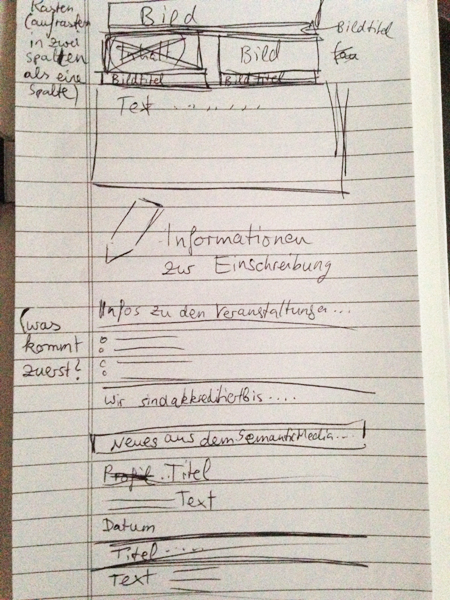 Kasten
(aufrasten
in zwei
Spalten
als eine
Spalte)
Bild
Bildtitel
Bild
Bildtitel
Bildtitel
Text ......
Informationen
zur Einschreibung
Infos zu den Veranstaltungen...
(was
kommt
zuerst?
Wir sind akkreditiert bis ....
Neues aus dem SemanticMedia...
Profil.. Titel
Text
Datum
Titel .....
Text